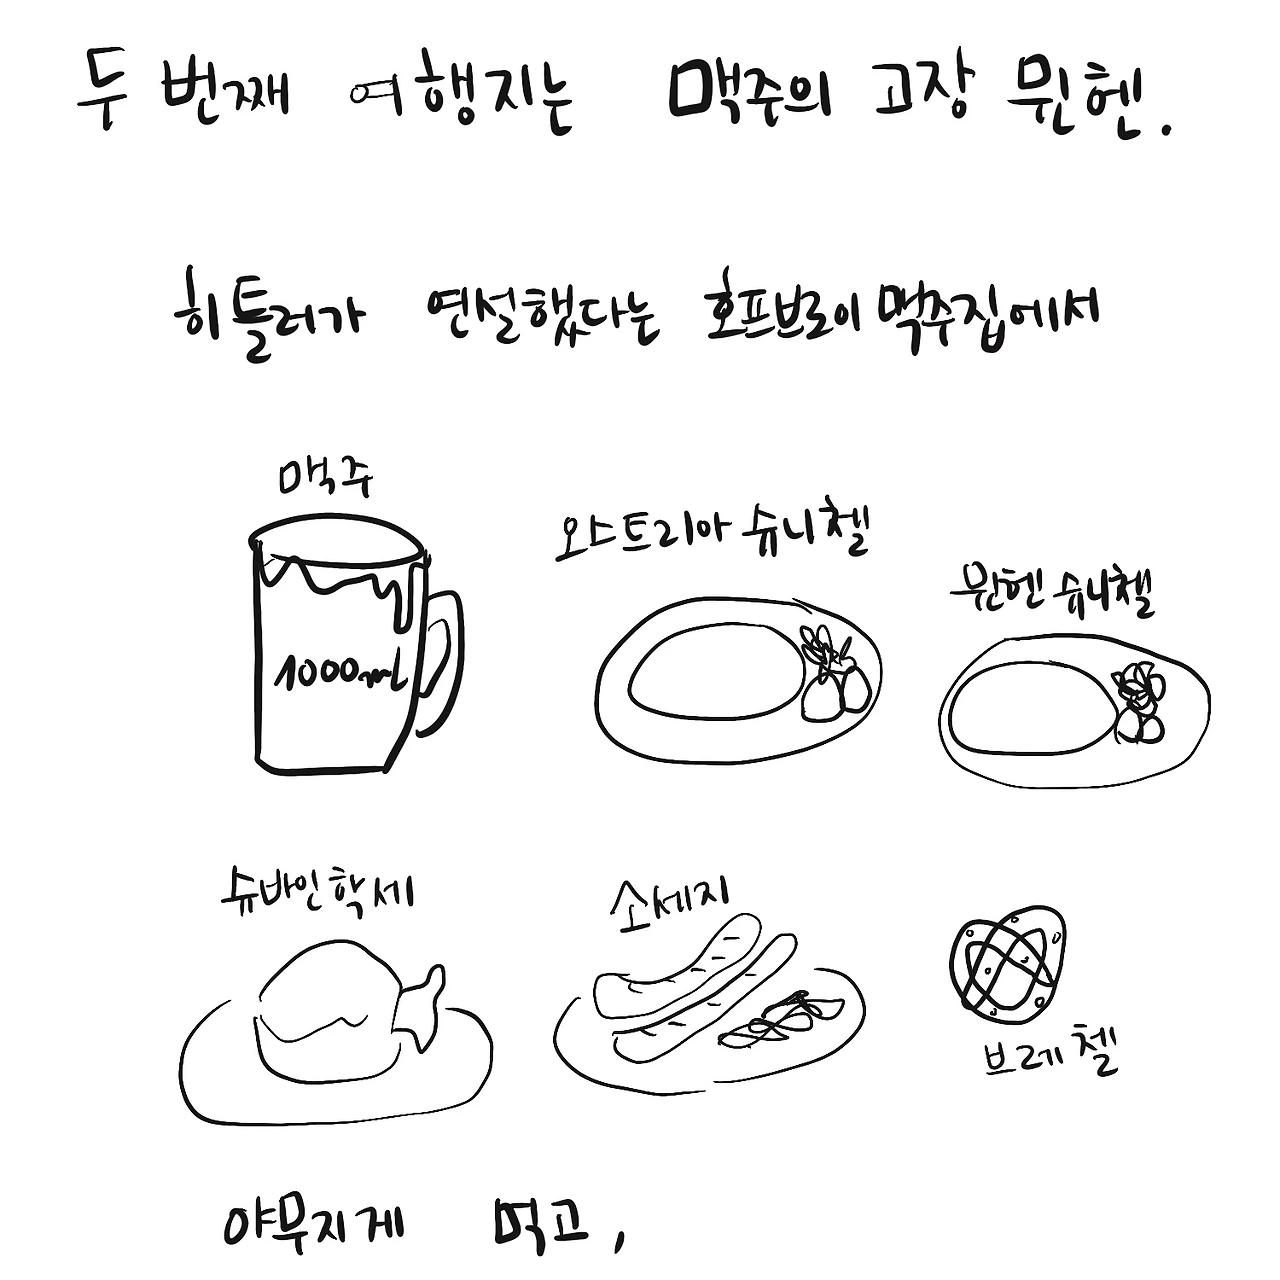 두 번째 여행지는 맥주의 고장 뮌헨.
히틀러가 연설했다는 호프브로이 맥주집에서
맥주
오스트리아 슈니첼
뮌헨 슈니첼
1000mL
슈바인학세
소세지
브레첼
야무지게 먹고,